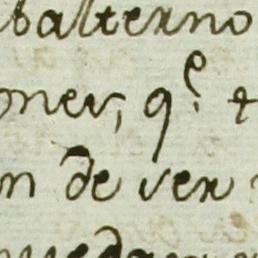 balterno
oner, q.e t
n de ver